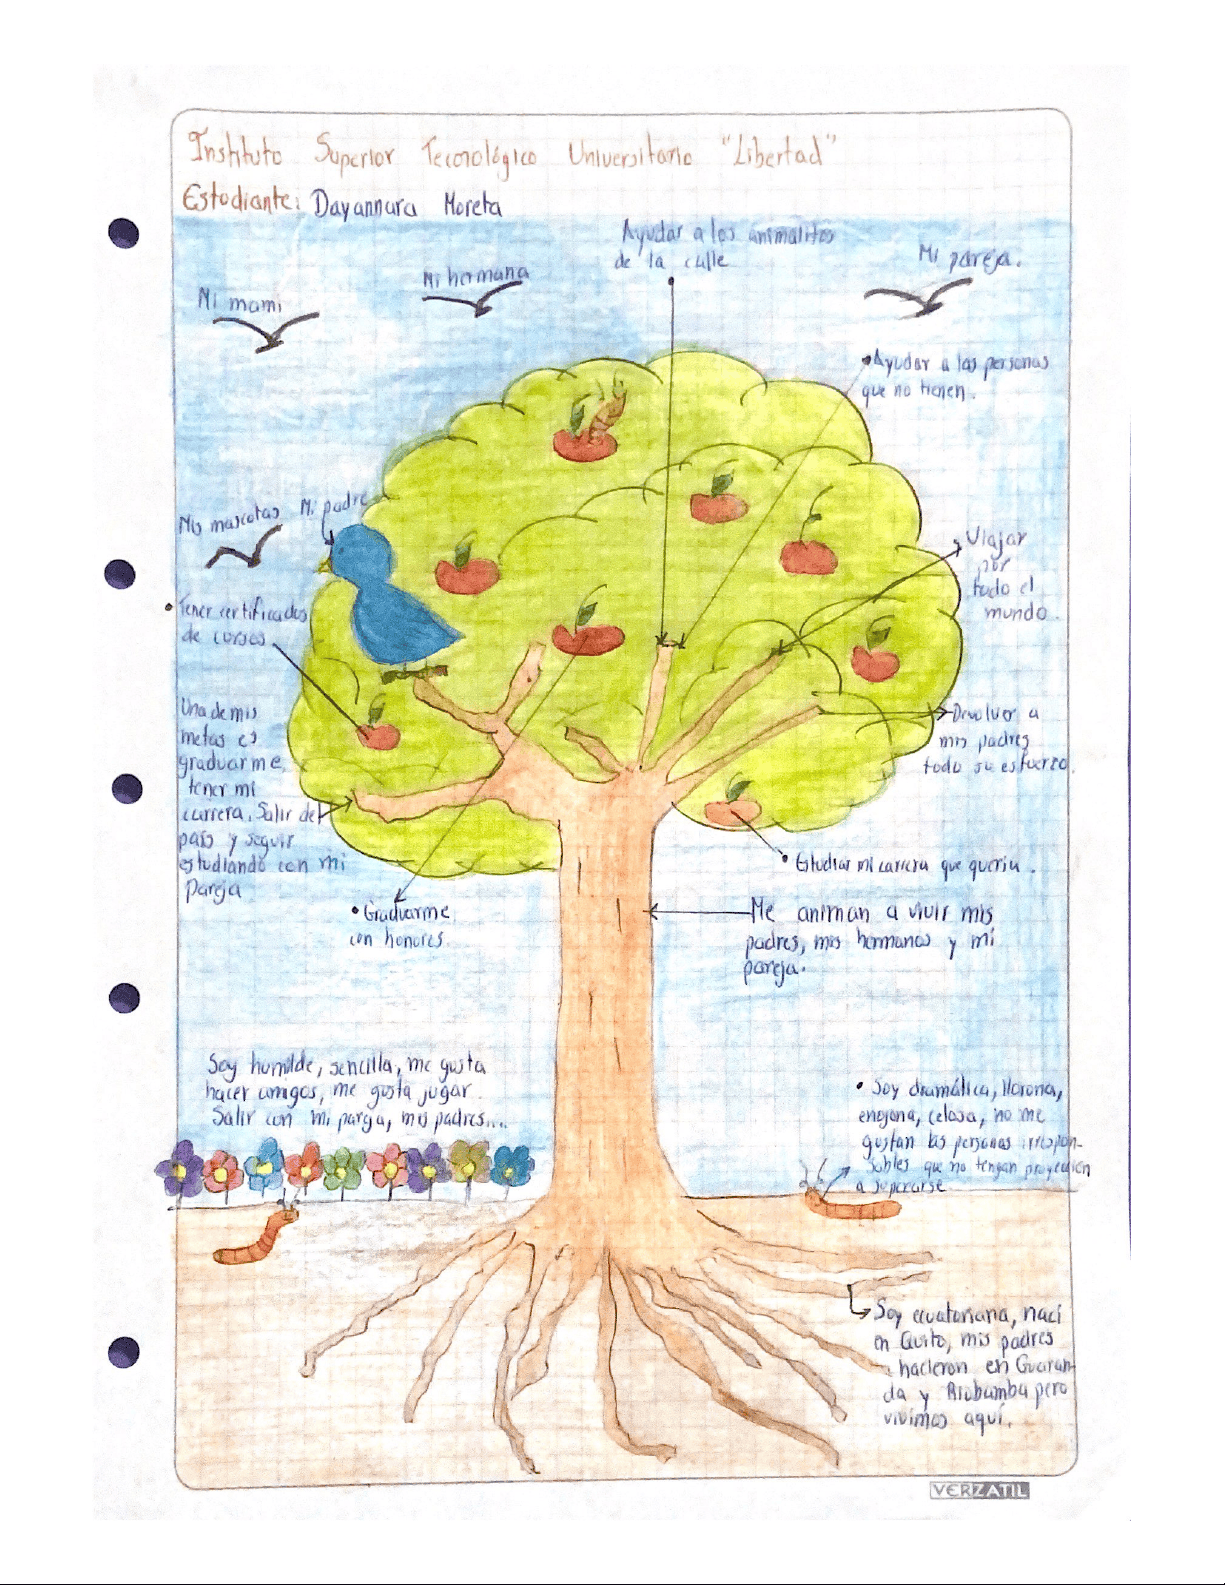 Instituto Superior Tecnológico Universitario "Libertad"
Estudiante: Dayannara Moreta
Ayudar a los animalitos
de la calle
Mi pareja.
Mi hermana
Mi mami
• Ayudar a las personas
que no tienen.
Mis mascotas
Mi padre
Viajar
por
todo el
mundo.
• Tener certificados
de cursos
Una de mis
metas es
graduarme,
tener mi
carrera. Salir del
país y seguir
estudiando con mi
pareja
Devolver a
mis padres
todo su esfuerzo.
• Estudiar mi carrera que queria.
• Graduarme
con honores.
Me animan a vivir mis
padres, mis hermanos y mi
pareja.
Soy humilde, sencilla, me gusta
hacer amigos, me gusta jugar.
Salir con mi pareja, mis padres....
• Soy dramática, llorona,
enojona, celosa, no me
gustan las personas irrespon-
sables que no tengan proyección
a superarse.
Soy ecuatoriana, naci
en Quito, mis padres
nacieron en Guaran-
da y Riobamba pero
vivimos aquí.
VERZATIL